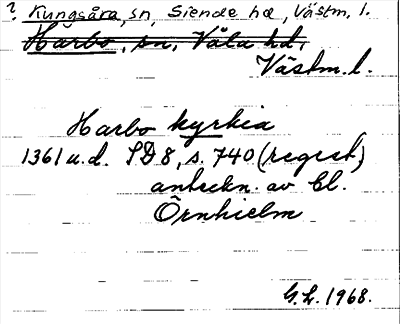 ? Kungsåra, sn, Siende hd, Västm. l.
Harbo, sn, Våla hd,
Västm. l.
Harbo kyrkia
1361 u.d. SD 8, s. 740 (regest,)
anteckn. av Cl.
Örnhielm
G.L. 1968.